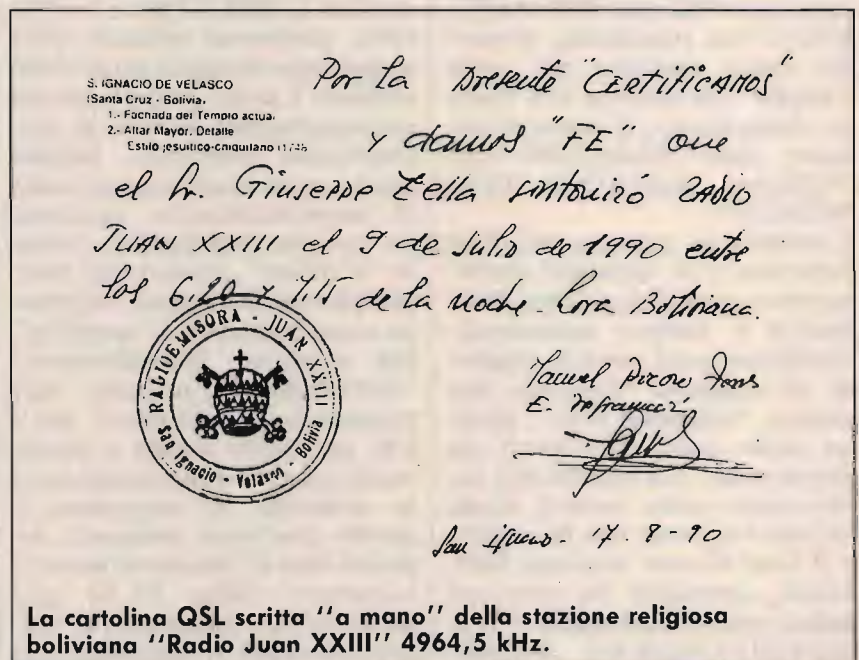 S. IGNACIO DE VELASCO
(Santa Cruz - Bolivia)
1.- Fachada del Templo actual
2.- Altar Mayor. Detalle
Estilo jesuítico-chiquitano
Por la presente "CERTIFICAMOS"
y damos "FE" que
el Sr. GIUSEPPE Zella sintonizó RADIO
JUAN XXIII el 9 de Julio de 1990 entre
las 6,20 y 7,15 de la noche - hora Boliviana.
RADIOEMISORA - JUAN XXIII
San Ignacio - Velasco - Bolivia
E.
San Ignacio - 17.
-90
La cartolina QSL scritta ''a mano'' della stazione religiosa
boliviana ''Radio Juan XXIII'' 4964,5 kHz.